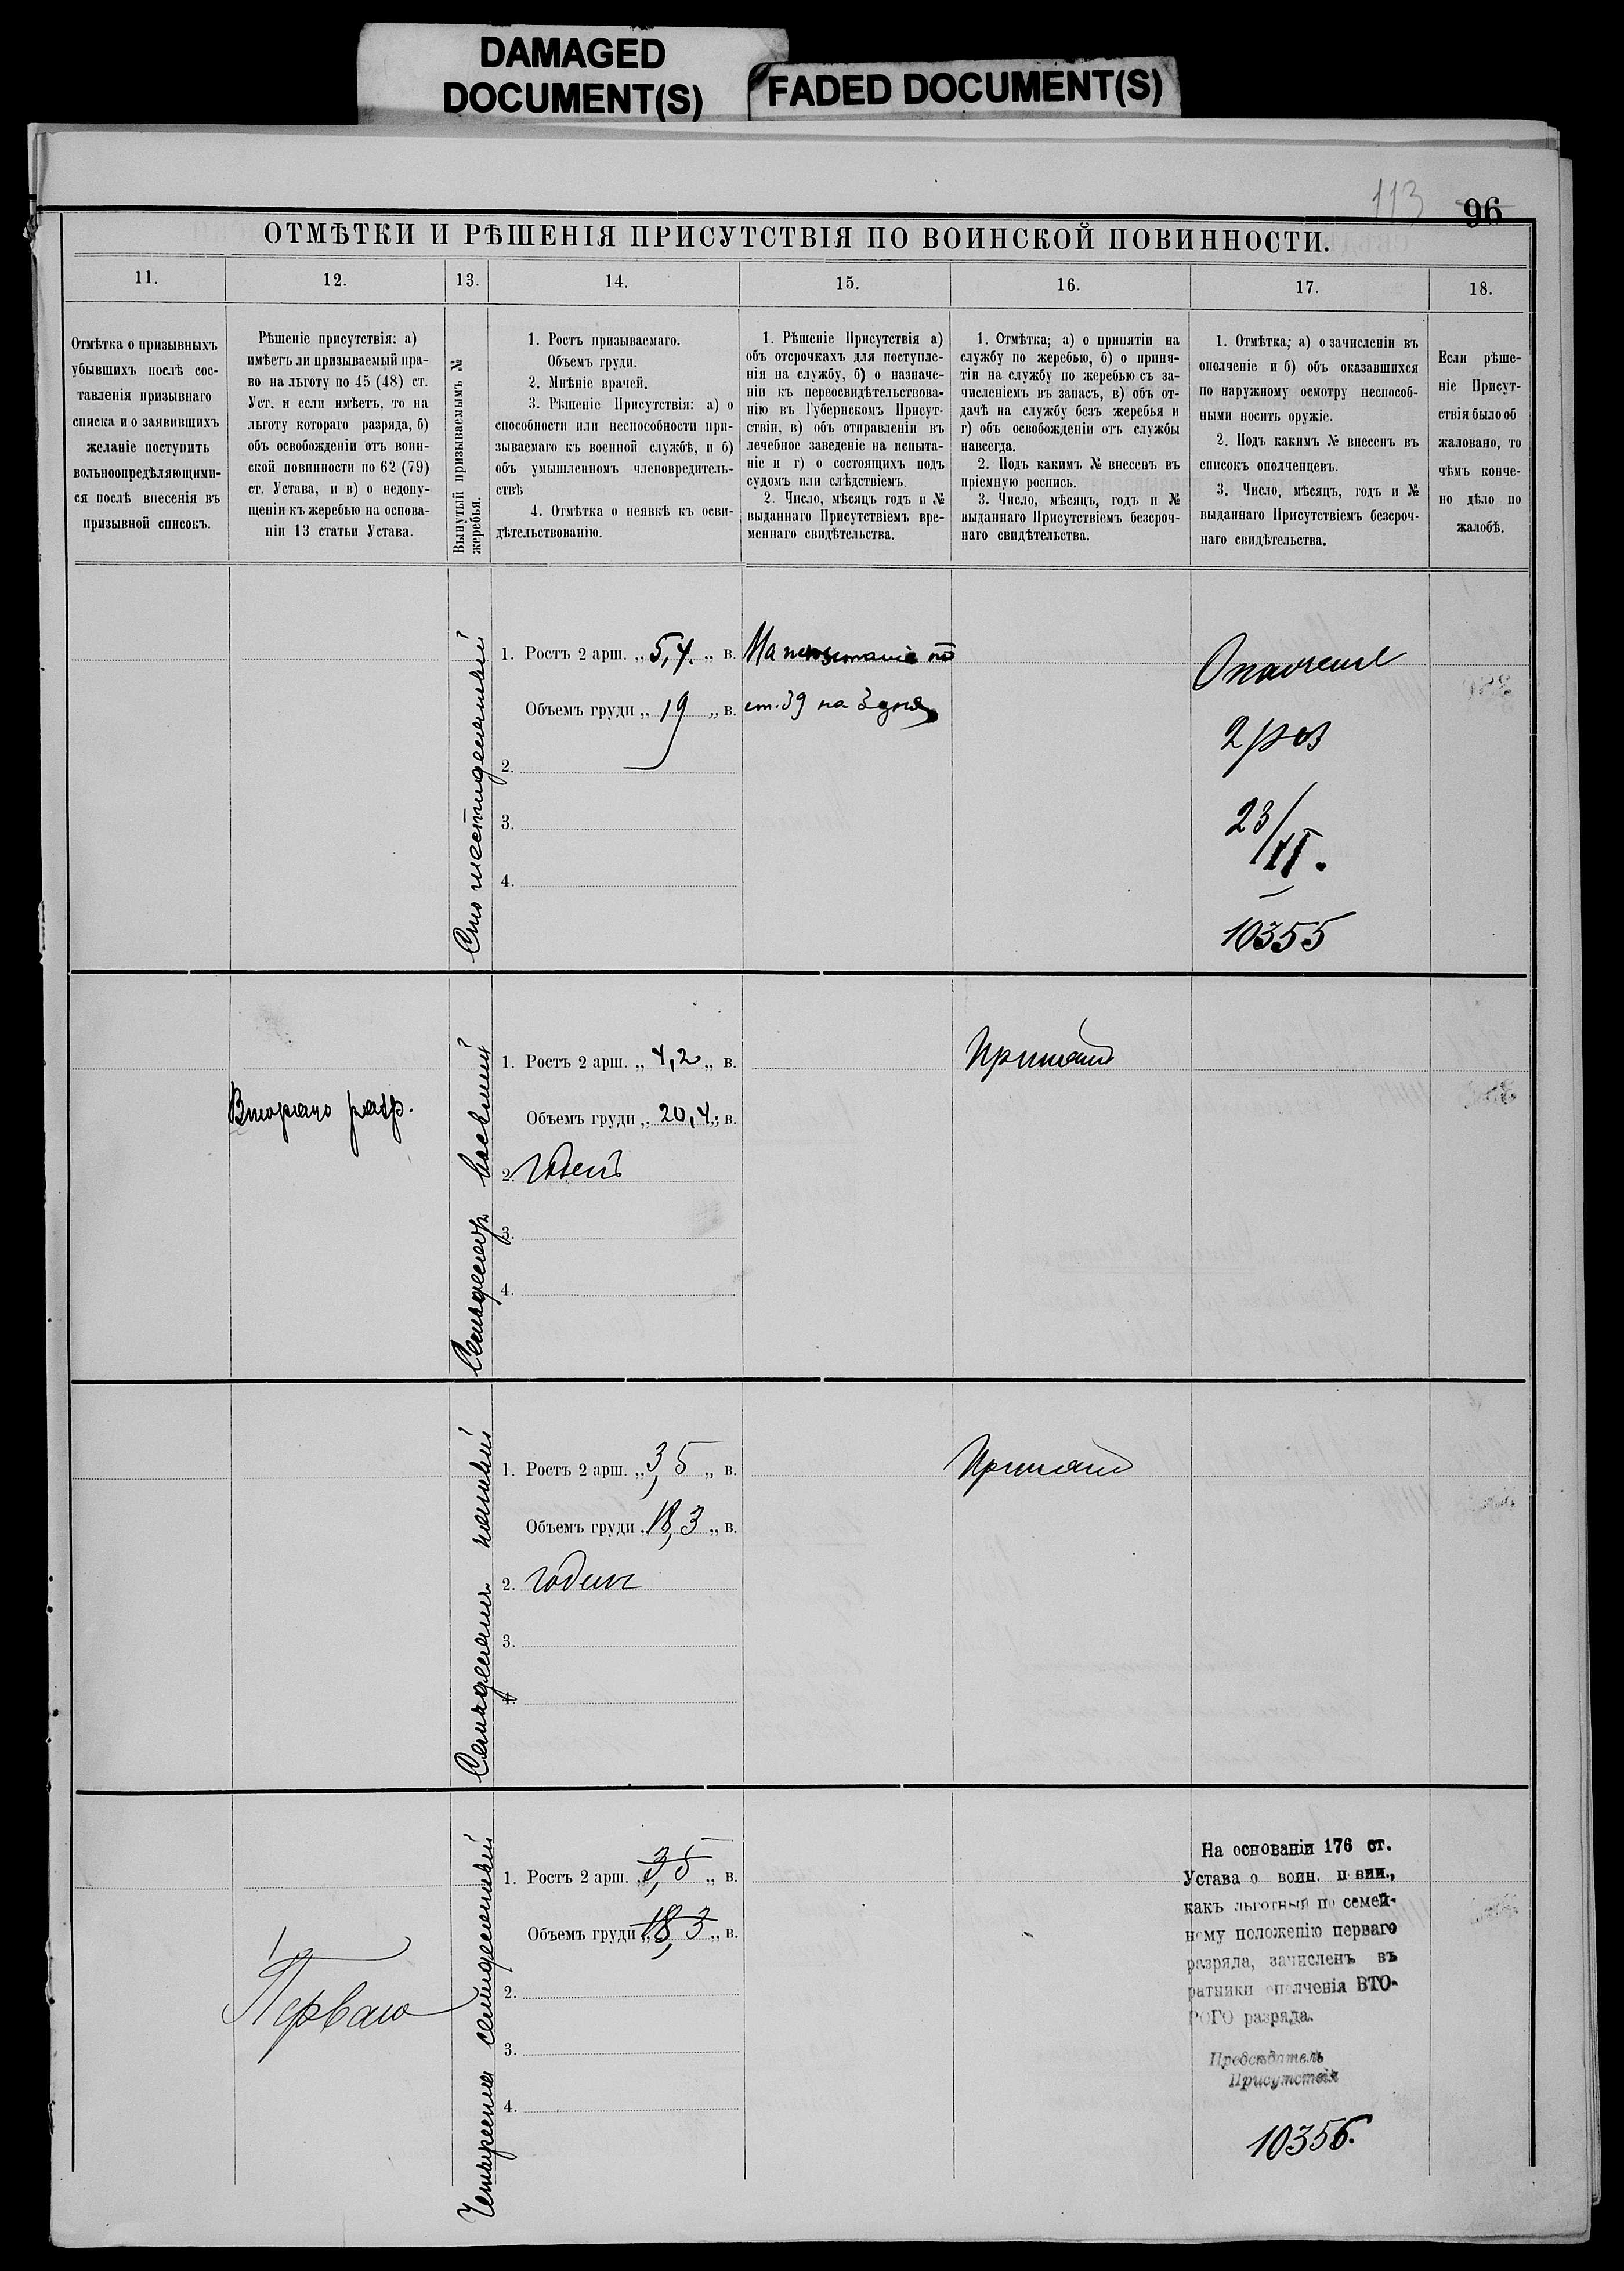 DAMAGED
DOCUMENT(S)
FADED DOCUMENT(S)
113
96
ОТМѢТКИ И РѢШЕНІЯ ПРИСУТСТВІЯ ПО ВОИНСКОЙ ПОВИННОСТИ.
11.
12.
13.
14.
15.
16.
17.
18.
Отмѣтка о призывныхъ
убывшихъ послѣ сос-
тавленія призывнаго
списка и о заявившихъ
желаніе поступить
вольноопредѣляющими-
ся послѣ внесенія въ
призывной списокъ.
Рѣшеніе присутствія: а)
имѣетъ ли призываемый пра-
во на льготу по 45 (48) ст.
Уст. и если имѣетъ, то на
льготу котораго разряда, б)
объ освобожденіи отъ воин-
ской повинности по 62 (79)
ст. Устава, и в) о недопу-
щеніи къ жеребью на основа-
ніи 13 статьи Устава.
Вынутый призываемымъ №
жеребья.
1. Ростъ призываемаго.
Объемъ груди.
2. Мнѣніе врачей.
3. Рѣшеніе Присутствія: а) о
способности или неспособности при-
зываемаго къ военной службѣ, и б)
объ умышленномъ членовредитель-
ствѣ
4. Отмѣтка о неявкѣ къ осви-
дѣтельствованію.
1. Рѣшеніе Присутствія а)
объ отсрочкахъ для поступле-
нія на службу, б) о назначе-
ніи къ переосвидѣтельствова-
нію въ Губернскомъ Присут-
ствіи, в) объ отправленіи въ
лечебное заведеніе на испыта-
ніе и г) о состоящихъ подъ
судомъ или слѣдствіемъ
2. Число, мѣсяцъ годъ и №
выданнаго Присутствіемъ вре-
меннаго свидѣтельства.
1. Отмѣтка; а) о принятіи на
службу по жеребью, б) о приня-
тіи на службу по жеребью съ за-
численіемъ въ запасъ, в) объ от-
дачѣ на службу безъ жеребья и
г) объ освобожденіи отъ службы
навсегда.
2. Подъ какимъ № внесенъ въ
пріемную роспись.
3. Число, мѣсяцъ, годъ и №
выданнаго Присутствіемъ безсроч-
наго свидѣтельства.
1. Отмѣтка; а) о зачисленіи въ
ополченіе и б) объ оказавшихся
по наружному осмотру неспособ-
ными носить оружіе.
2. Подъ какимъ № внесенъ въ
списокъ ополченцевъ.
3. Число, мѣсяцъ, годъ и №
выданнаго Присутствіемъ безсроч-
наго свидѣтельства.
Если рѣше-
ніе Присут-
ствія было об
жаловано, то
чѣмъ конче-
но дѣло по
жалобѣ.
Сто шестидесятый
1. Ростъ 2 арш. „ 5,4. „ в.
Объемъ груди „ 19 „ в.
2.
3.
4.
На испытаніе по
ст. 39 на 3 дня
Ополченіе
2 раз
23/XI.
10355
Второго разр.
Семьдесятъ восьмой
1. Ростъ 2 арш. „ 4,2 „ в.
Объемъ груди „ 20,4 „ в.
2. годенъ
3.
4.
Принятъ
Семьдесятъ
1. Ростъ 2 арш. „ 3,5 „ в.
Объемъ груди „ 18,3 „ в.
2. годенъ
3.
4.
Принятъ
Перваго
Четыреста семидесятый
1. Ростъ 2 арш. „ 3,5 „ в.
Объемъ груди „ 18,3 „ в.
2.
3.
4.
На основаніи 176 ст.
Устава о воин. повин.,
какъ льготный по семей-
ному положенію перваго
разряда, зачисленъ въ
ратники ополченія ВТО-
РОГО разряда.
Предсѣдатель
Присутствія
10356.